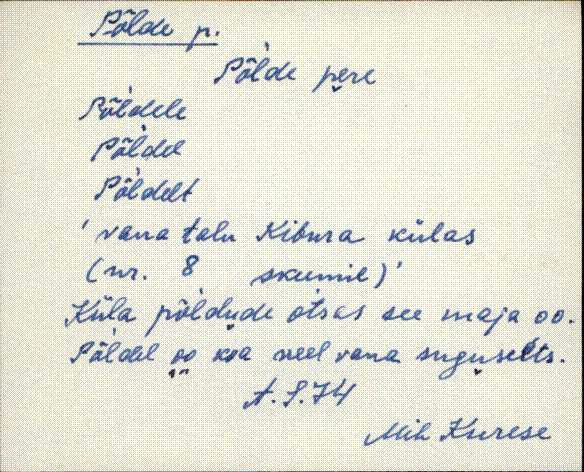 Põlde p.
Põlde pere
Põldele
Põldel
Põldelt
'vana talu Kibura külas
(nr. 8 skeemil)'
Küla põldude otsas see maja oo.
Põldel oo kua neel vana suguselts.
A. S. 74
Mih Kurese